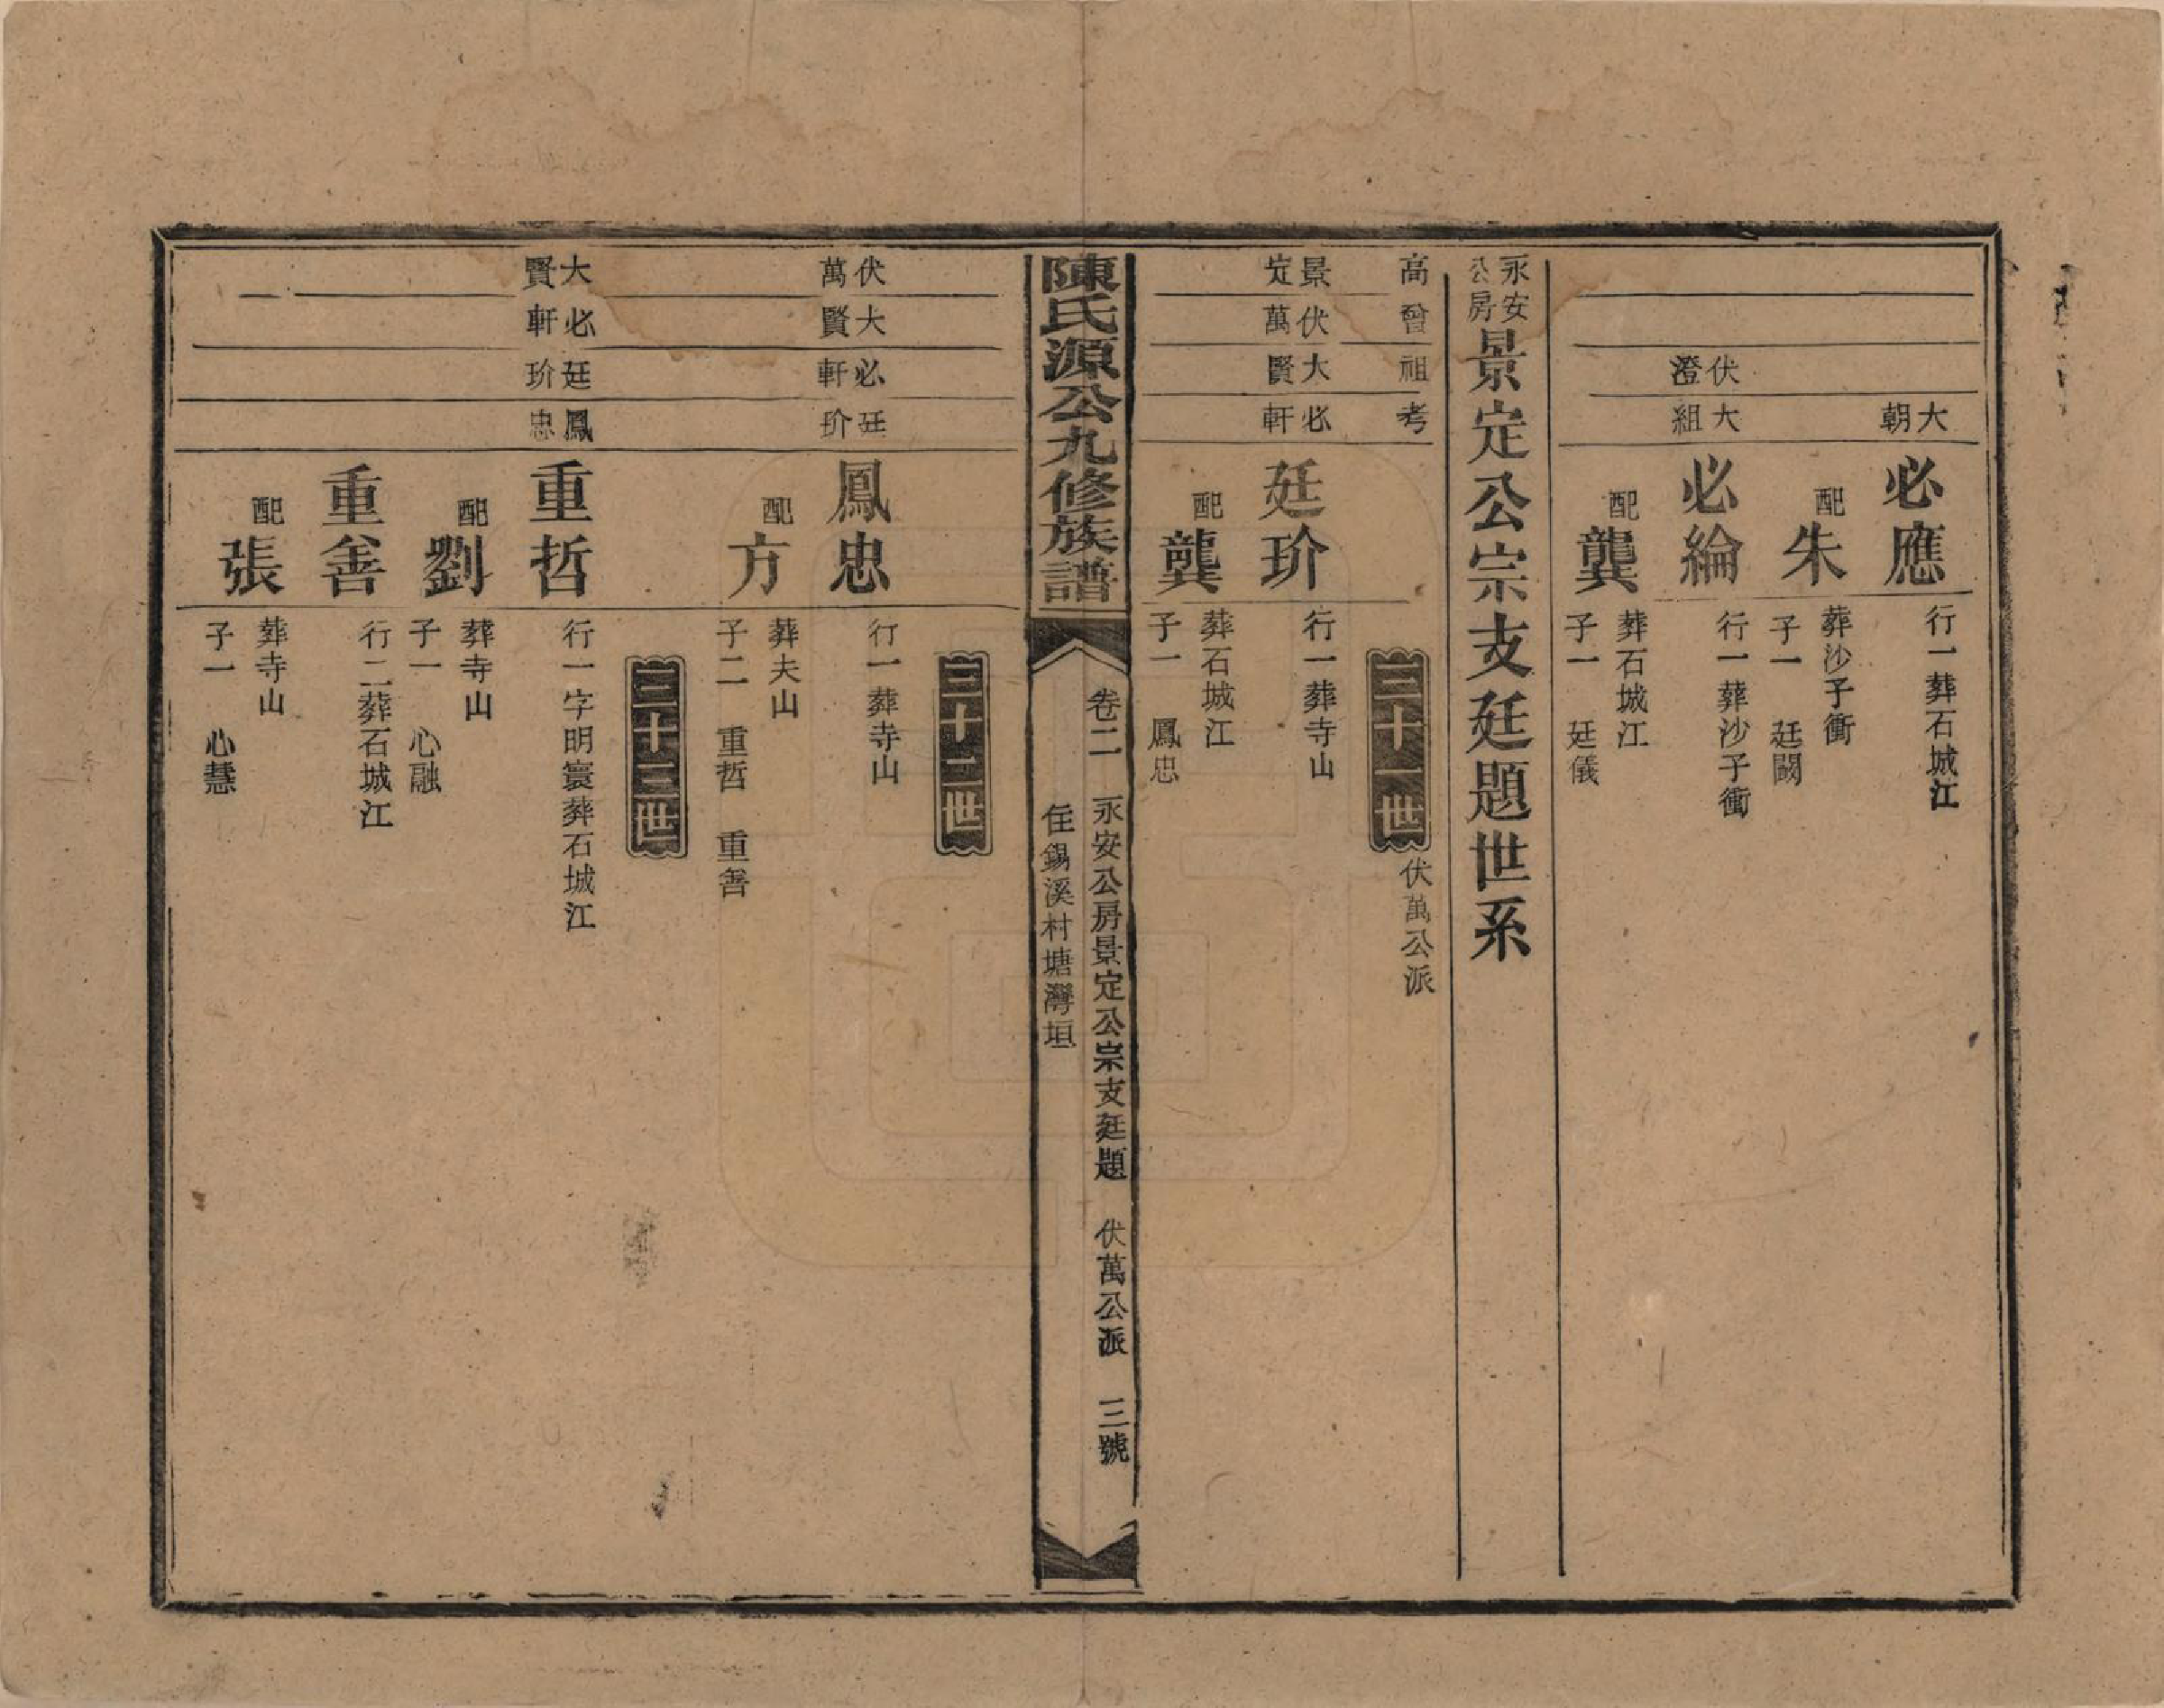 大朝
必應
行一葬石城江
配朱
葬沙子衝
子一 廷闕
伏澄
大組
必綸
行一葬沙子衝
配龔
葬石城江
子一 廷儀
永安公房
景定公宗支廷題世系
高
曾
祖
考
三十一世
伏萬公派
景定
伏萬
大賢
必軒
廷玠
行一葬寺山
配龔
葬石城江
子一 鳳忠
陳氏源公九修族譜
卷二 永安公房景定公宗支廷題 伏萬公派 三號
住錫溪村塘灣垣
三十二世
伏萬
大賢
必軒
廷玠
鳳忠
行一葬寺山
配方
葬夫山
子二 重哲 重善
三十三世
大賢
必軒
廷玠
鳳忠
重哲
行一字明寰葬石城江
配劉
葬寺山
子一 心融
重善
行二葬石城江
配張
葬寺山
子一 心慧